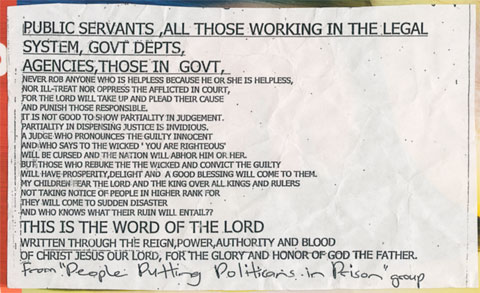 PUBLIC SERVANTS ,ALL THOSE WORKING IN THE LEGAL
SYSTEM, GOVT DEPTS,
AGENCIES,THOSE IN GOVT,
NEVER ROB ANYONE WHO IS HELPLESS BECAUSE HE OR SHE IS HELPLESS,
NOR ILL-TREAT NOR OPPRESS THE AFFLICTED IN COURT,
FOR THE LORD WILL TAKE UP AND PLEAD THEIR CAUSE
AND PUNISH THOSE RESPONSIBLE.
IT IS NOT GOOD TO SHOW PARTIALITY IN JUDGEMENT.
PARTIALITY IN DISPENSING JUSTICE IS INVIDIOUS.
A JUDGE WHO PRONOUNCES THE GUILTY INNOCENT
AND WHO SAYS TO THE WICKED ' YOU ARE RIGHTEOUS'
WILL BE CURSED AND THE NATION WILL ABHOR HIM OR HER.
BUT THOSE WHO REBUKE THE THE WICKED AND CONVICT THE GUILTY
WILL HAVE PROSPERITY,DELIGHT AND A GOOD BLESSING WILL COME TO THEM.
MY CHILDREN FEAR THE LORD AND THE KING OVER ALL KINGS AND RULERS
NOT TAKING NOTICE OF PEOPLE IN HIGHER RANK FOR
THEY WILL COME TO SUDDEN DISASTER
AND WHO KNOWS WHAT THEIR RUIN WILL ENTAIL??
THIS IS THE WORD OF THE LORD
WRITTEN THROUGH THE REIGN,POWER,AUTHORITY AND BLOOD
OF CHRIST JESUS OUR LORD, FOR THE GLORY AND HONOR OF GOD THE FATHER.
From "People Putting Politicians in Prison" group